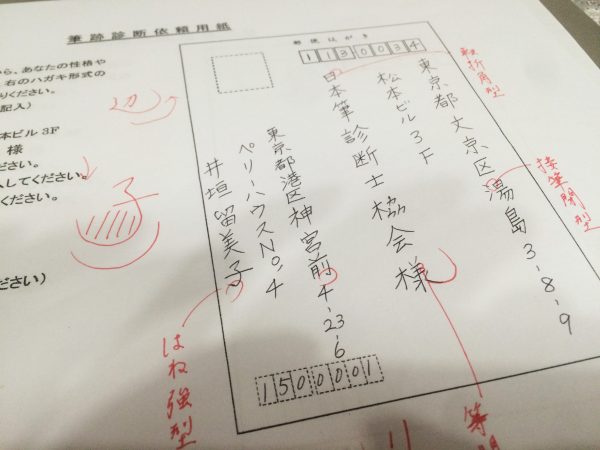 筆跡診断依頼用紙
ら、あなたの性格や
右のハガキ形式の
りください。
記入）
本ビル 3F
様
ださい。
入してください。
ください。
ださい）
郵便はがき
1130034
東京都文京区湯島3-8-9
松本ビル3F
日本筆診断士協会様
東京都港区神宮前4-23-6
ペリーハウスNo.4
井垣留美子
1500001
転折角型
接筆
子
はね強型
等間